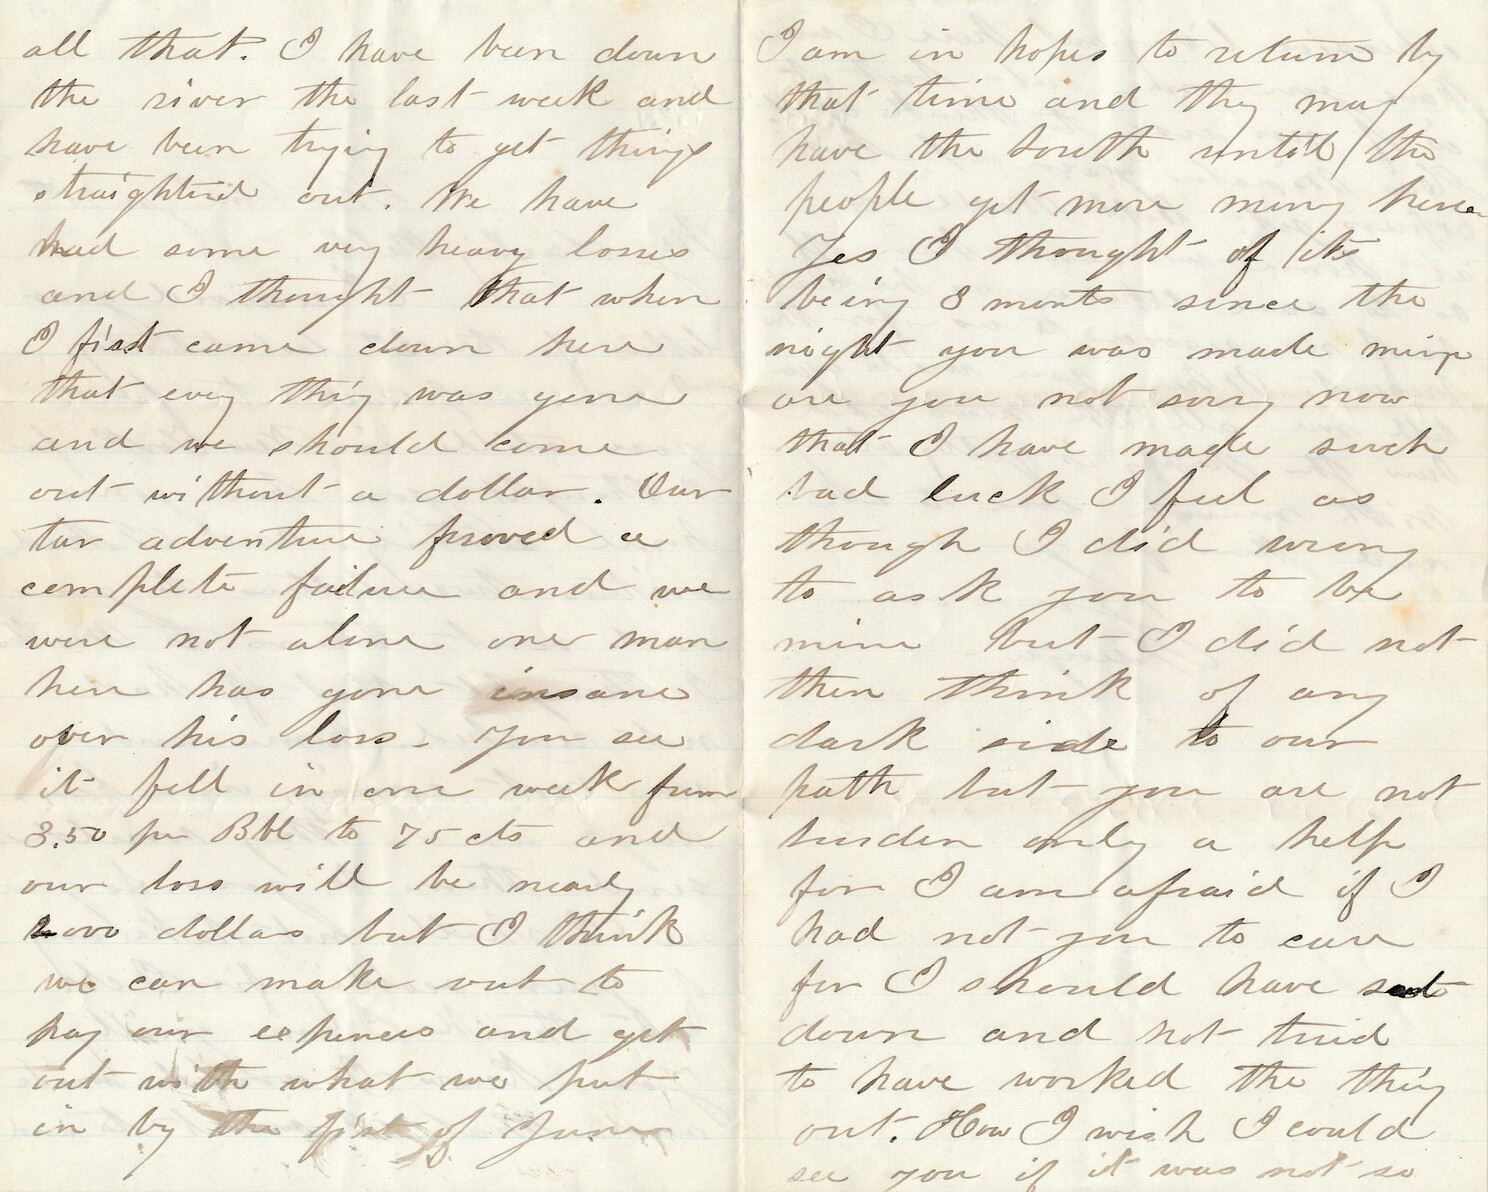 all that. I have been down
the river the last week and
have been trying to get things
straightend out. We have
had some very heavy losses
and I thought that when
I first came down here
that evey thing was gone
and we should come
out without a dollar. Our
tar adventure proved a
complete failure and we
were not alone one man
here has gone insane
over his loss. You see
it fell in one week from
3.50 per Bbl to 75 cts and
our loss will be nearly
2000 dollars but I think
we can make out to
pay our expences and get
out with what we put
in by the first of June
I am in hopes to return by
that time and they may
have the South until the
people get more money here
Yes I thought of its
being 8 monts since the
night you was made mine
are you not sorry now
that I have made such
bad luck I feel as
though I did wrong
to ask you to be
mine but I did not
then think of any
dark side to our
path but you are not
burden only a help
for I am afraid if I
had not you to care
for I should have
down and not tried
to have worked the thing
out. How I wish I could
see you if it was not so